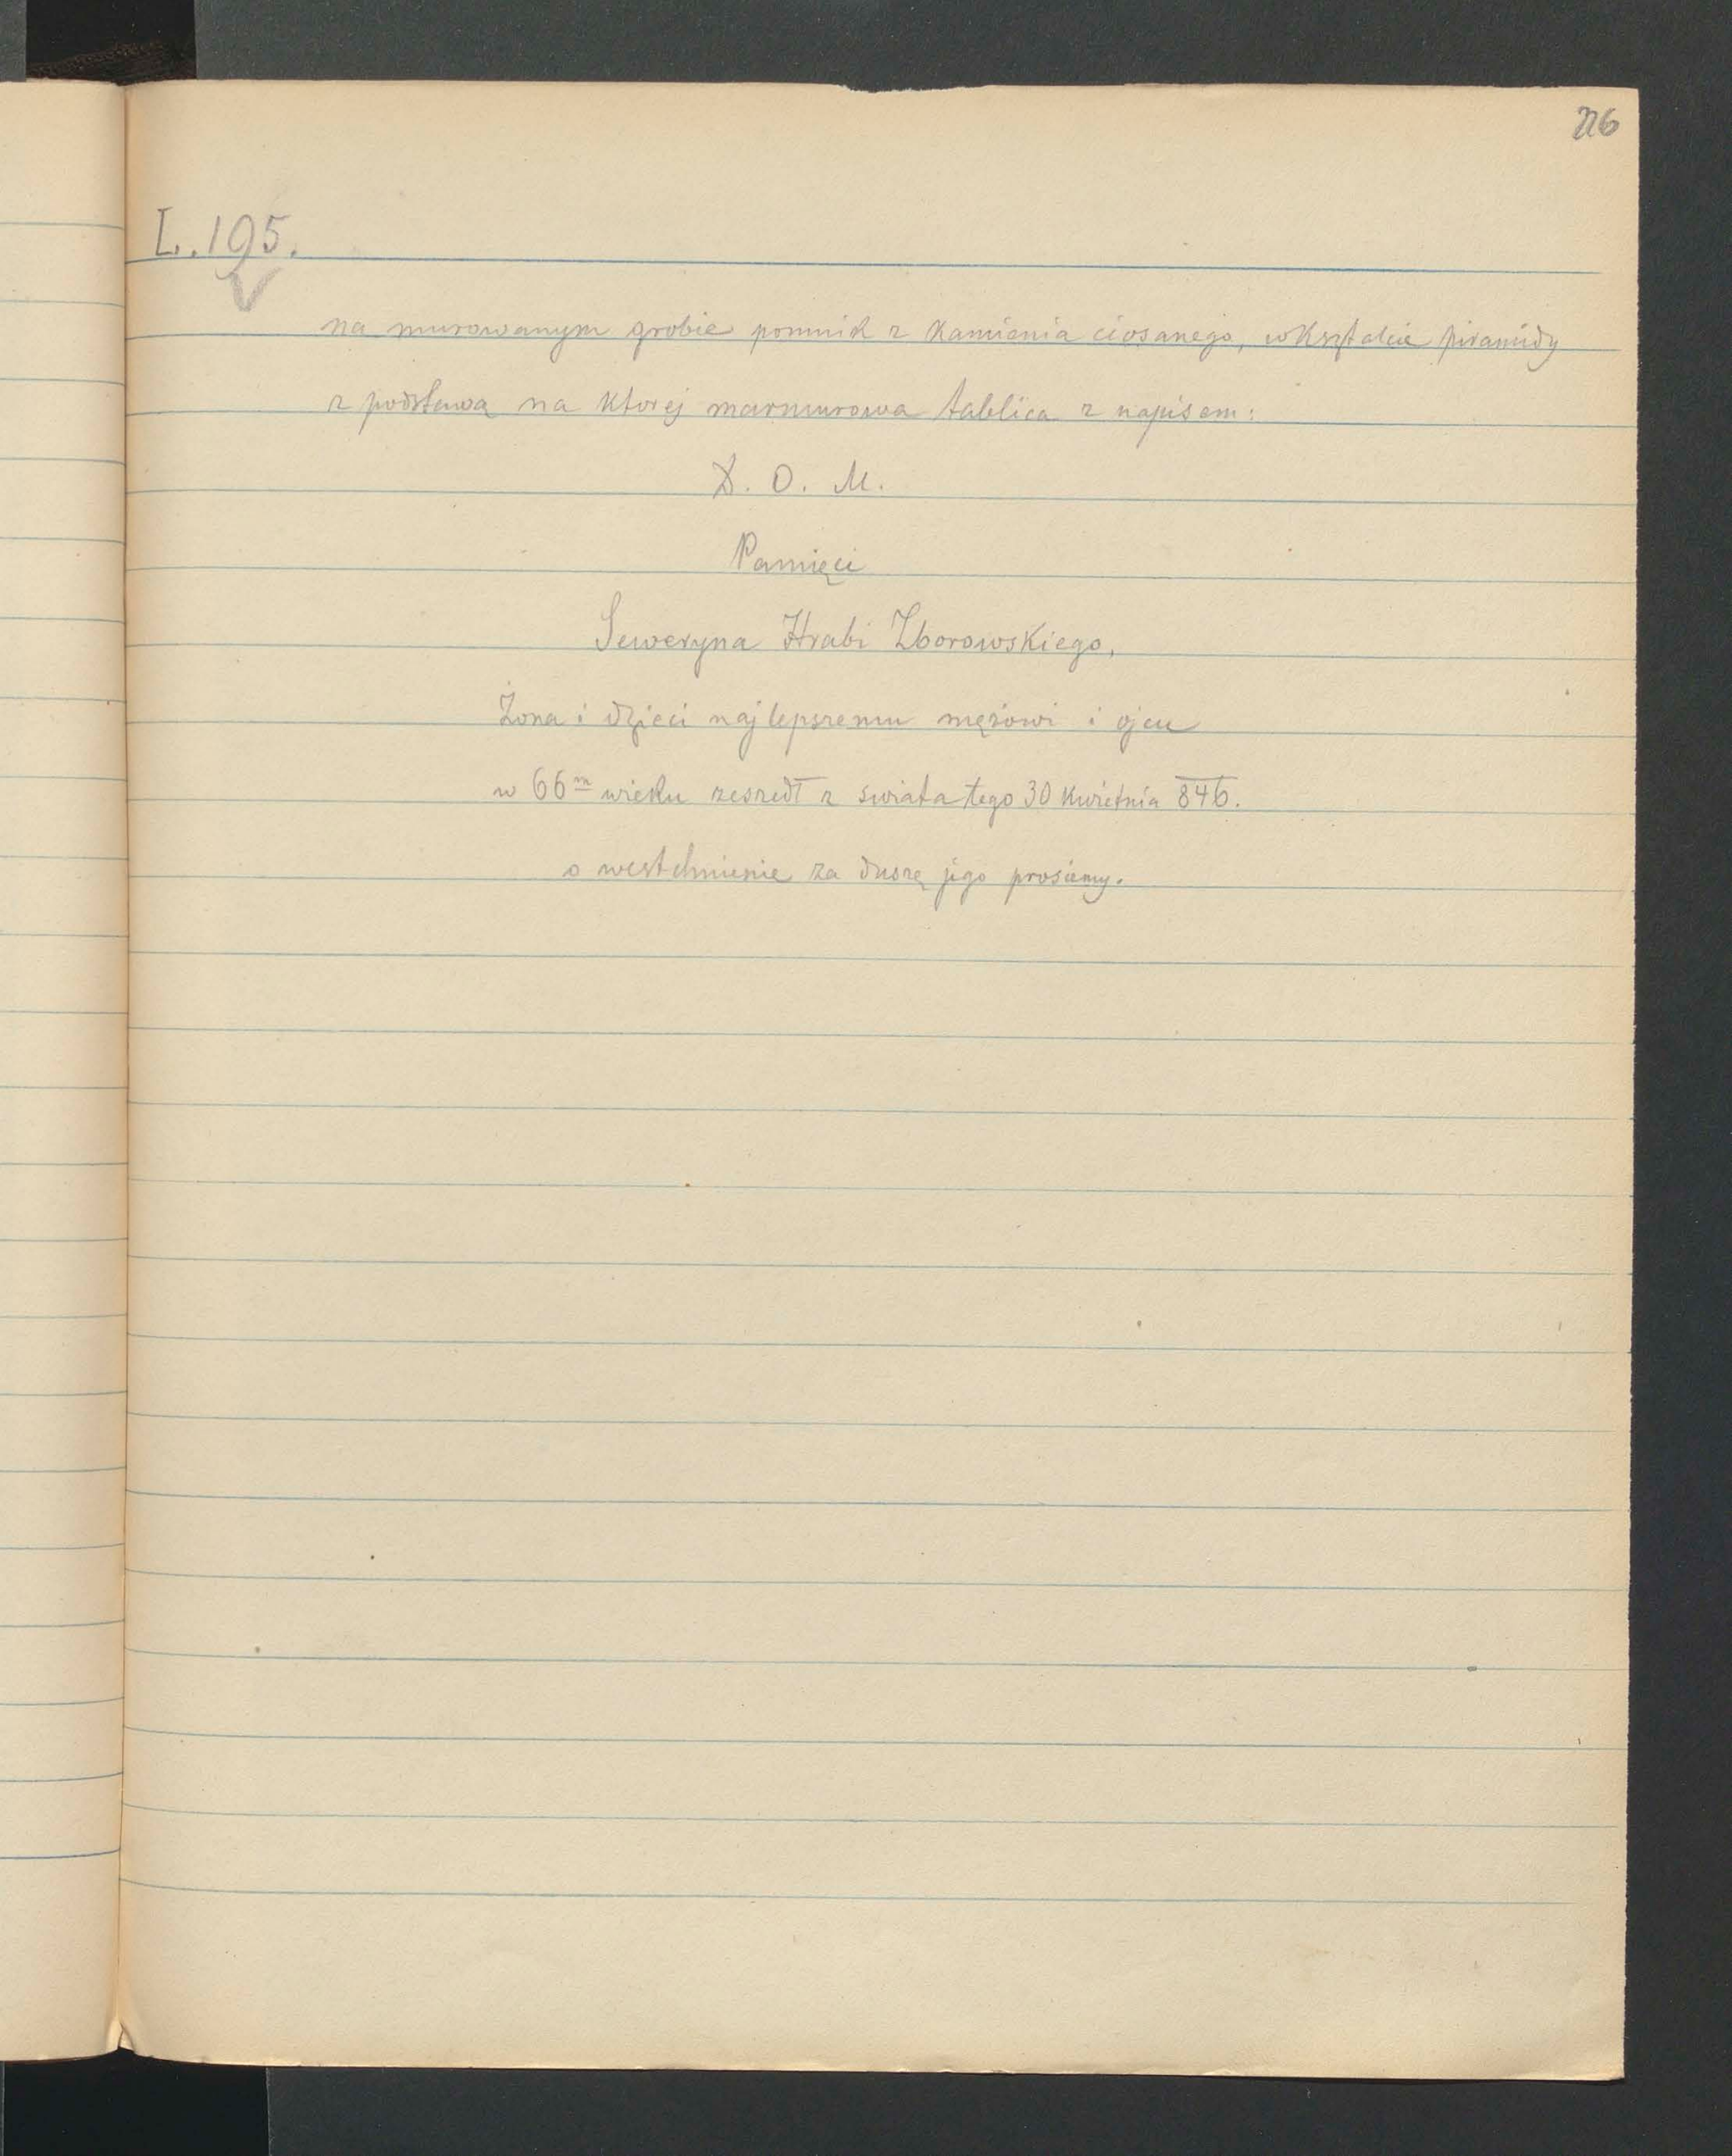 216
L. 195.
na murowanym grobie pomnik z kamienia ciosanego, w kształcie piramidy
z podstawą na ktorej marmurowa tablica z napisem:
D. O. M.
Pamięci
Seweryna Hrabi Zborowskiego,
Żona i dzieci najlepszemu mężowi i ojcu
w 66m wieku zeszedł z swiata tego 30 kwietnia 846.
o westchnienie za duszę jego prosiemy.